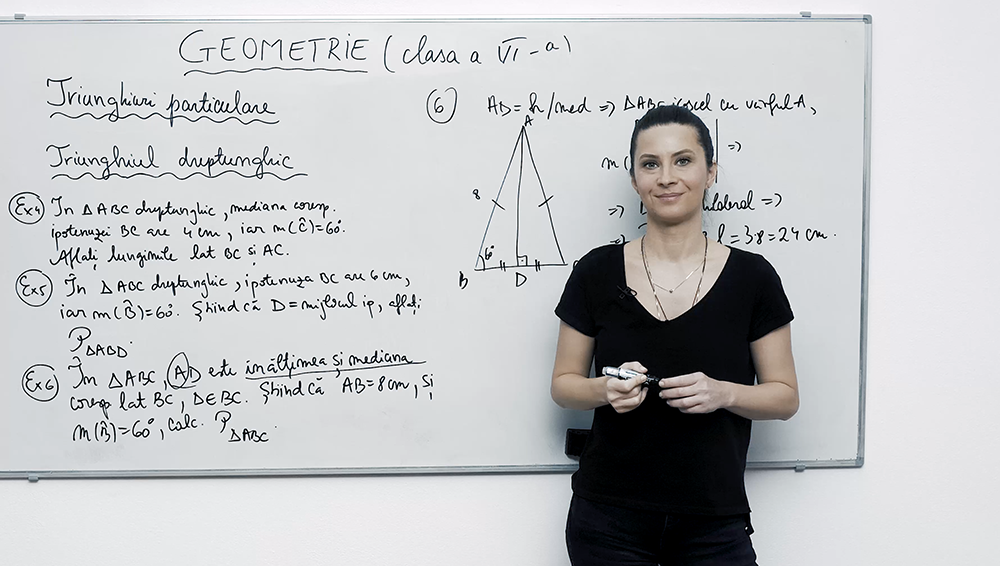 GEOMETRIE (clasa a VI-a)
Triunghiuri particulare
Triunghiul dreptunghic
Ex4 În △ABC dreptunghic, mediana coresp.
ipotenuzei BC are 4 cm, iar m(Ĉ)=60°.
Aflați lungimile lat BC și AC.
Ex5 În △ABC dreptunghic, ipotenuza BC are 6 cm,
iar m(B̂)=60°. Știind că D=mijlocul ip, aflați
P△ABD.
Ex6 În △ABC, AD este înălțimea și mediana
coresp lat BC, D∈BC. Știind că AB=8cm, și
m(B̂)=60°, calc. P△ABC.
6 AD = h/med => △ABC isoscel cu vârful A,
m( =>
=> =>
=> =3·8=24 cm.
A
8
60°
B D